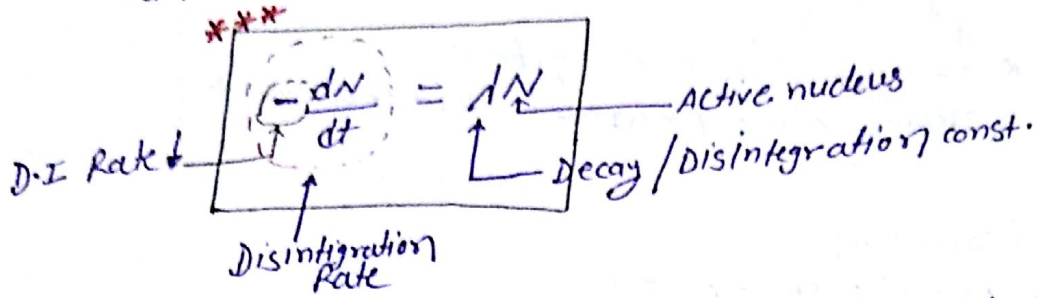 ***
- dN/dt = λN
Active nucleus
D.I Rate ↓
Decay / Disintegration const.
Disintigration
Rate